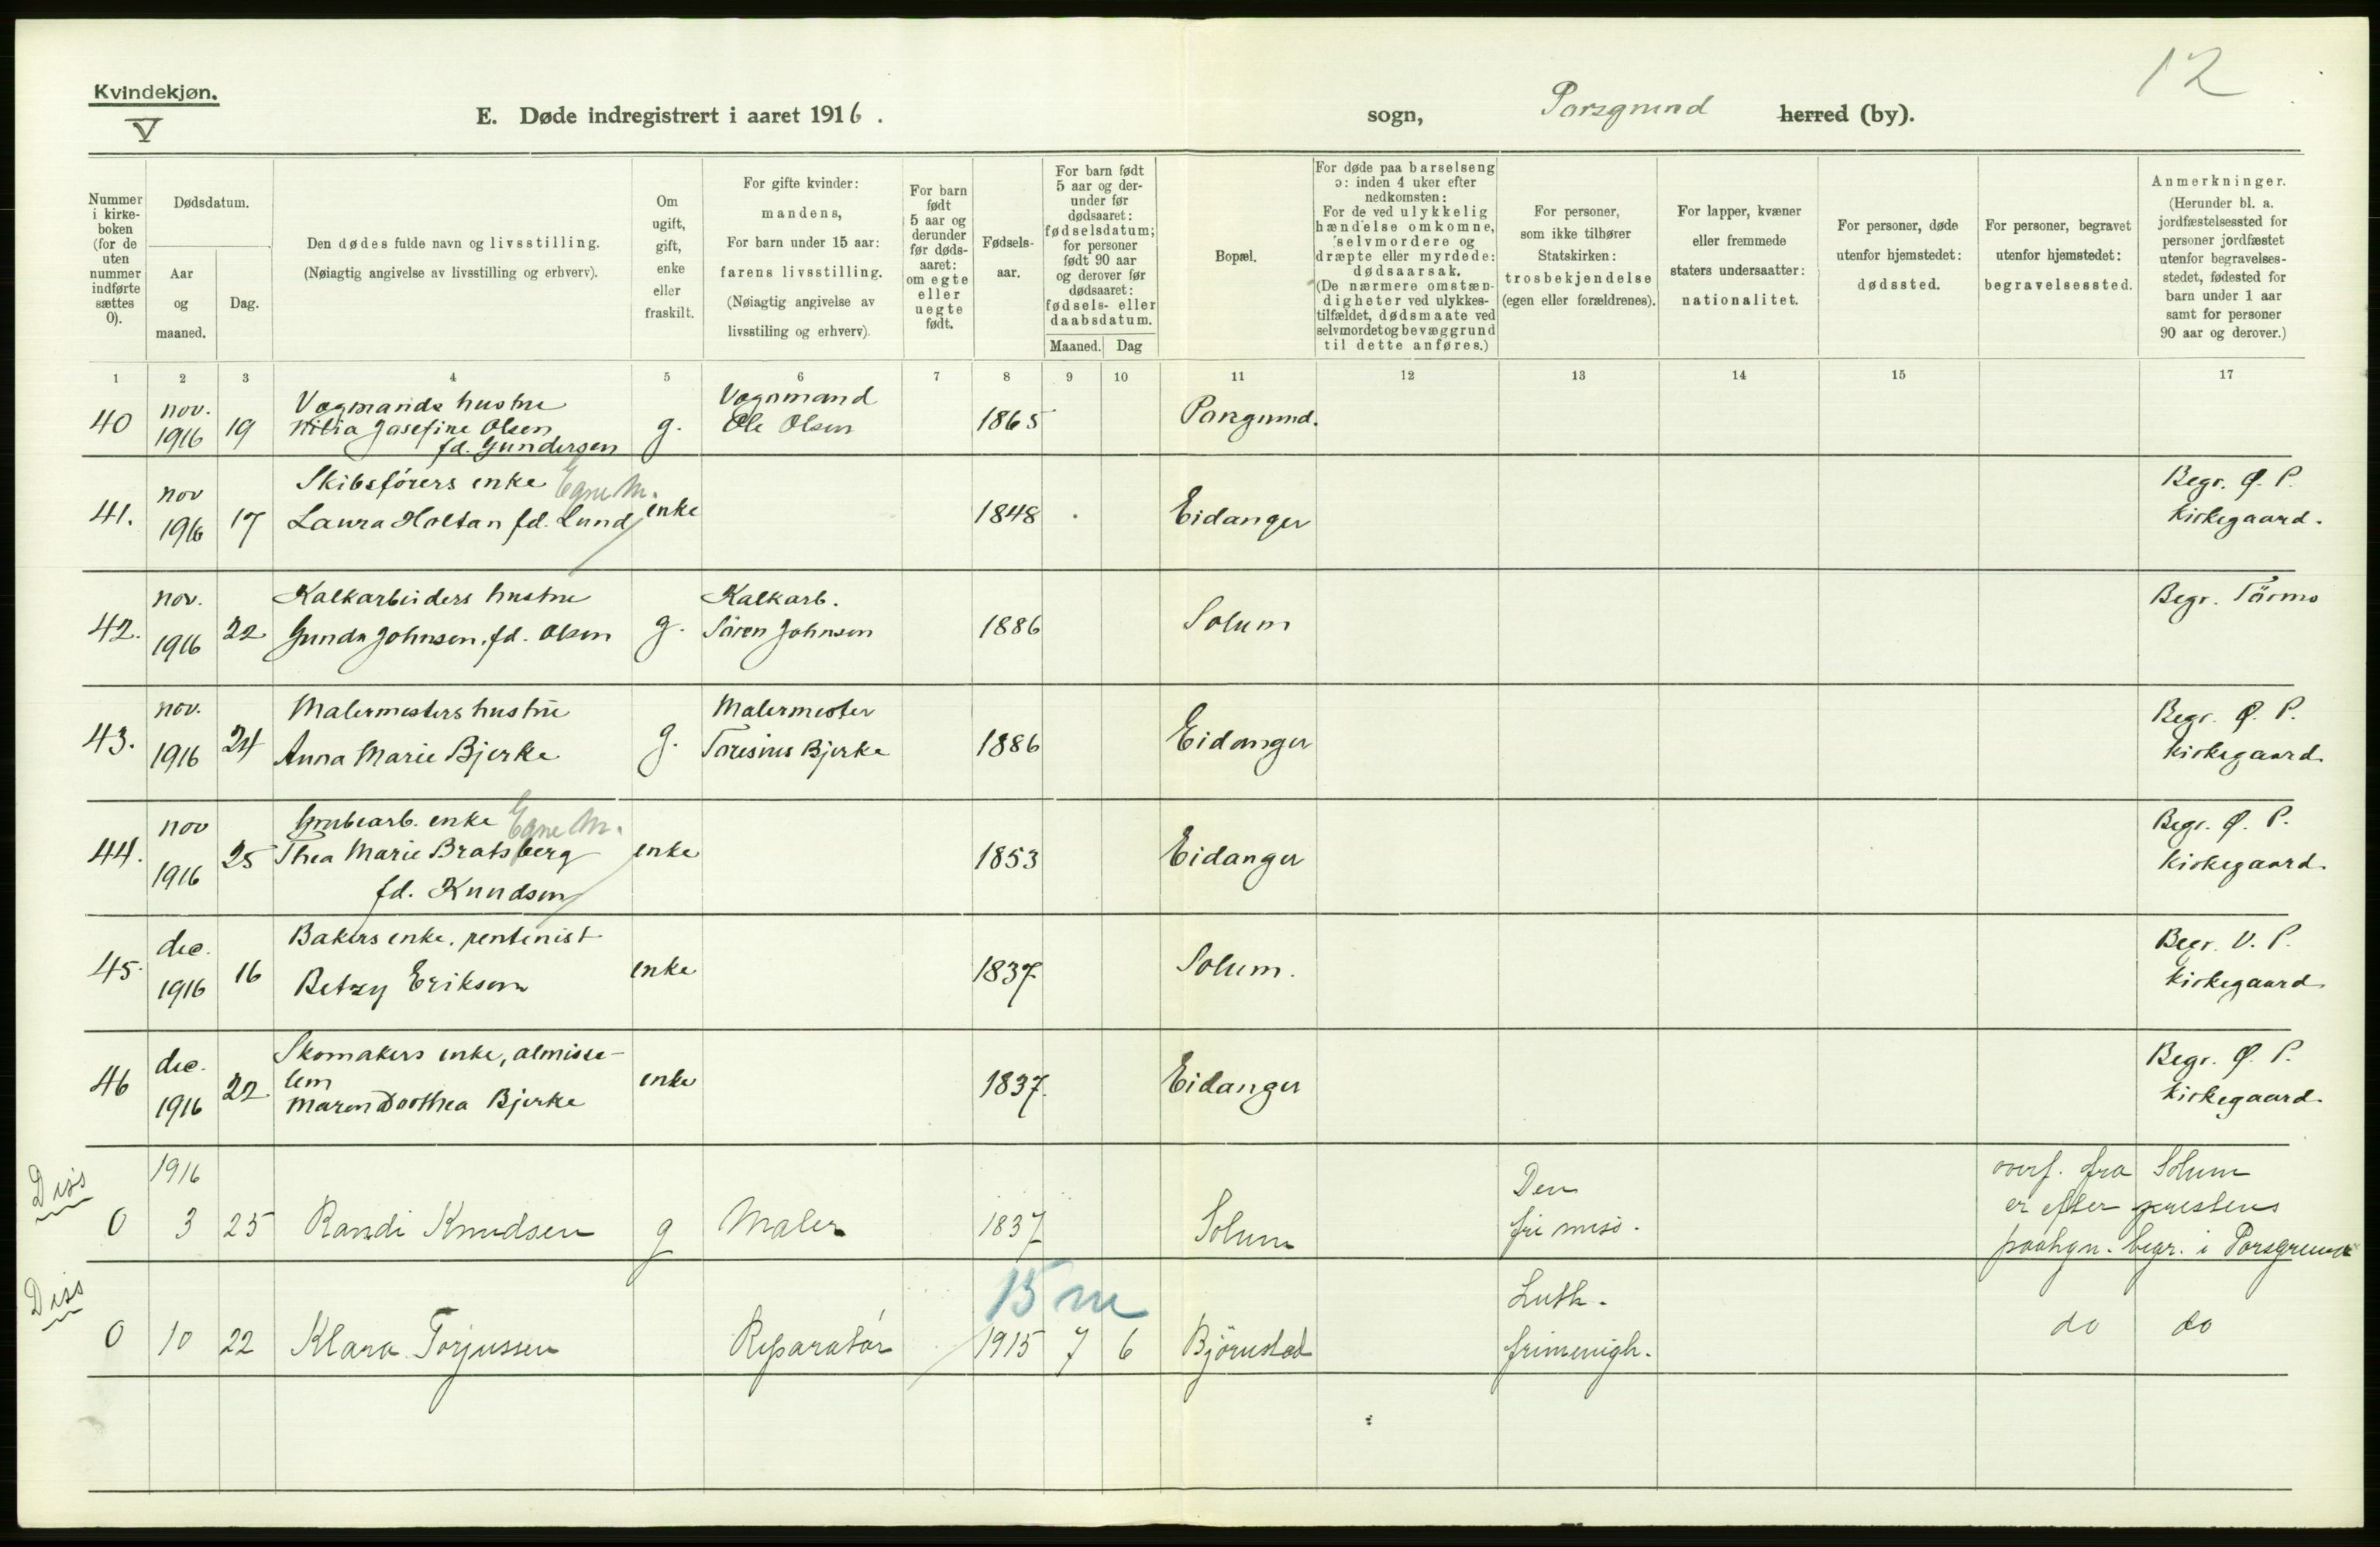 12
Kvindekjøn.
V
E. Døde indregistrert i aaret 1916.
sogn, Porsgrund herred (by).
Nummer i kirke-boken (for de uten nummer indførte sættes 0).
Dødsdatum.
Aar og maaned.
Dag.
Den dødes fulde navn og livsstilling.
(Nøiagtig angivelse av livsstilling og erhverv).
Om ugift, gift, enke eller fraskilt.
For gifte kvinder:
mandens,
For barn under 15 aar:
farens livsstilling.
(Nøiagtig angivelse av
livsstiling og erhverv).
For barn født 5 aar og derunder før døds-aaret: om egte eller uegte født.
Fødsels-aar.
For barn født 5 aar og der-under før dødsaaret: fødselsdatum; for personer født 90 aar og derover før dødsaaret: fødsels- eller daabsdatum.
Maaned. Dag
Bopæl.
For døde paa barselseng
ɔ: inden 4 uker efter
nedkomsten:
For de ved ulykkelig
hændelse omkomne,
selvmordere og
dræpte eller myrdede:
dødsaarsak.
(De nærmere omstæn-
digheter ved ulykkes-
tilfældet, dødsmaate ved
selvmordet og bevæggrund
til dette anføres.)
For personer,
som ikke tilhører
Statskirken:
trosbekjendelse
(egen eller forældrenes).
For lapper, kvæner
eller fremmede
staters undersaatter:
nationalitet.
For personer, døde
utenfor hjemstedet:
dødssted.
For personer, begravet
utenfor hjemstedet:
begravelsessted.
Anmerkninger.
(Herunder bl. a.
jordfæstelsessted for
personer jordfæstet
utenfor begravelses-
stedet, fødested for
barn under 1 aar
samt for personer
90 aar og derover.)
1 2 3 4 5 6 7 8 9 10 11 12 13 14 15 17
nov. Vogmands hustru Vognmand
40 1916 19 Josefine Olsen g. Ole Olsen 1865 Porsgrund.
fd. Gundersen
nov Skibsførers enke Egne M. Begr. Ø. P.
41. 1916 17 Laura Holtan fd. Lund enke 1848 Eidanger Kirkegaard.
nov. Kalkarbeiders hustru Kalkarb. Begr.
42. 1916 22 Gunda Johnsen, fd. Olsen g. Sören Johnsen 1886 Solum
nov. Malermesters hustru Malermester Begr. Ø. P.
43. 1916 24 Anna Marie Bjerke g. Bjerke 1886 Eidanger Kirkegaard.
nov Grubearb. enke Egne M. Begr. Ø. P.
44. 1916 25 Thea Marie Bratsberg enke 1853 Eidanger Kirkegaard.
fd. Knudsen
dec. Bakers enke, rentenist Begr. V. P.
45. 1916 16 Betzy Eriksen enke 1837 Solum. Kirkegaard
dec. Skomakers enke, almisse-
46 1916 22 lem enke 1837. Eidanger Begr. Ø. P.
Maren Dorthea Bjerke Kirkegaard.
Diss 1916 Den overf. fra Solum
0 3 25 Randi Knudsen g Maler 1837 Solum fri miss. er efter prestens
begr. i Porsgrund
Diss 15 m Luth.
0 10 22 Klara Torjussen Reparatör 1915 7 6 Björnstad frimenigh. do do